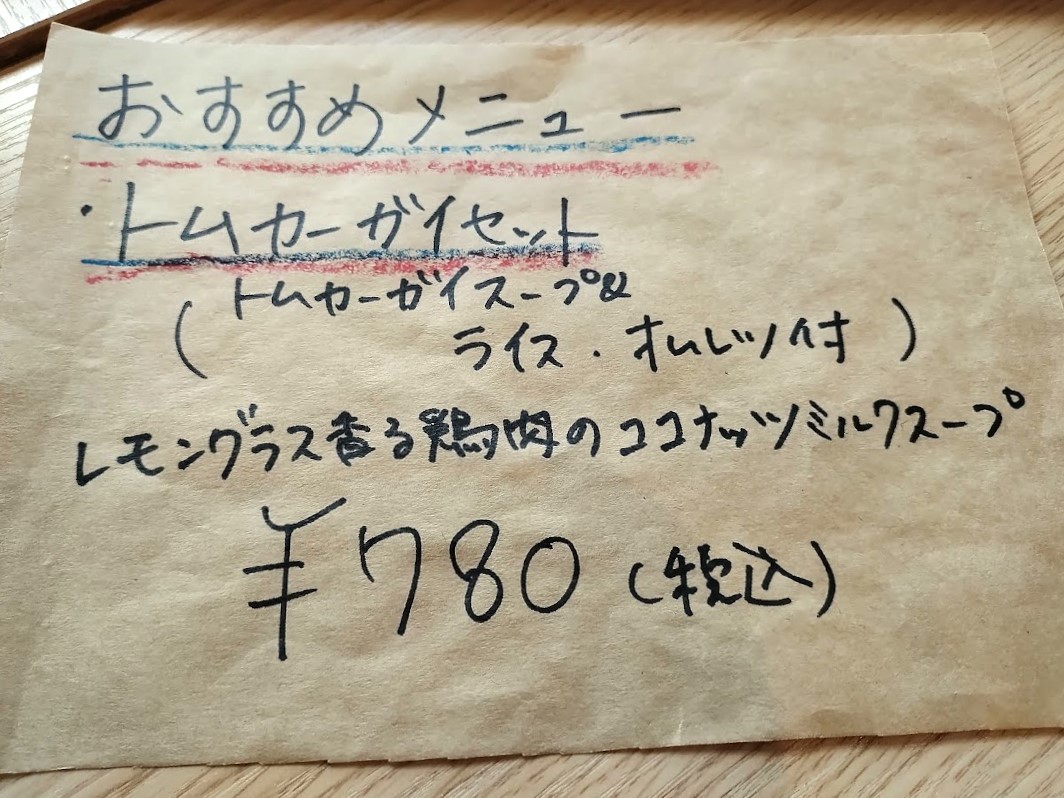 おすすめメニュー
・トムカーガイセット
(トムカーガイスープ&
ライス・オムレツ付)
レモングラス香る鶏肉のココナッツミルクスープ
¥780(税込)